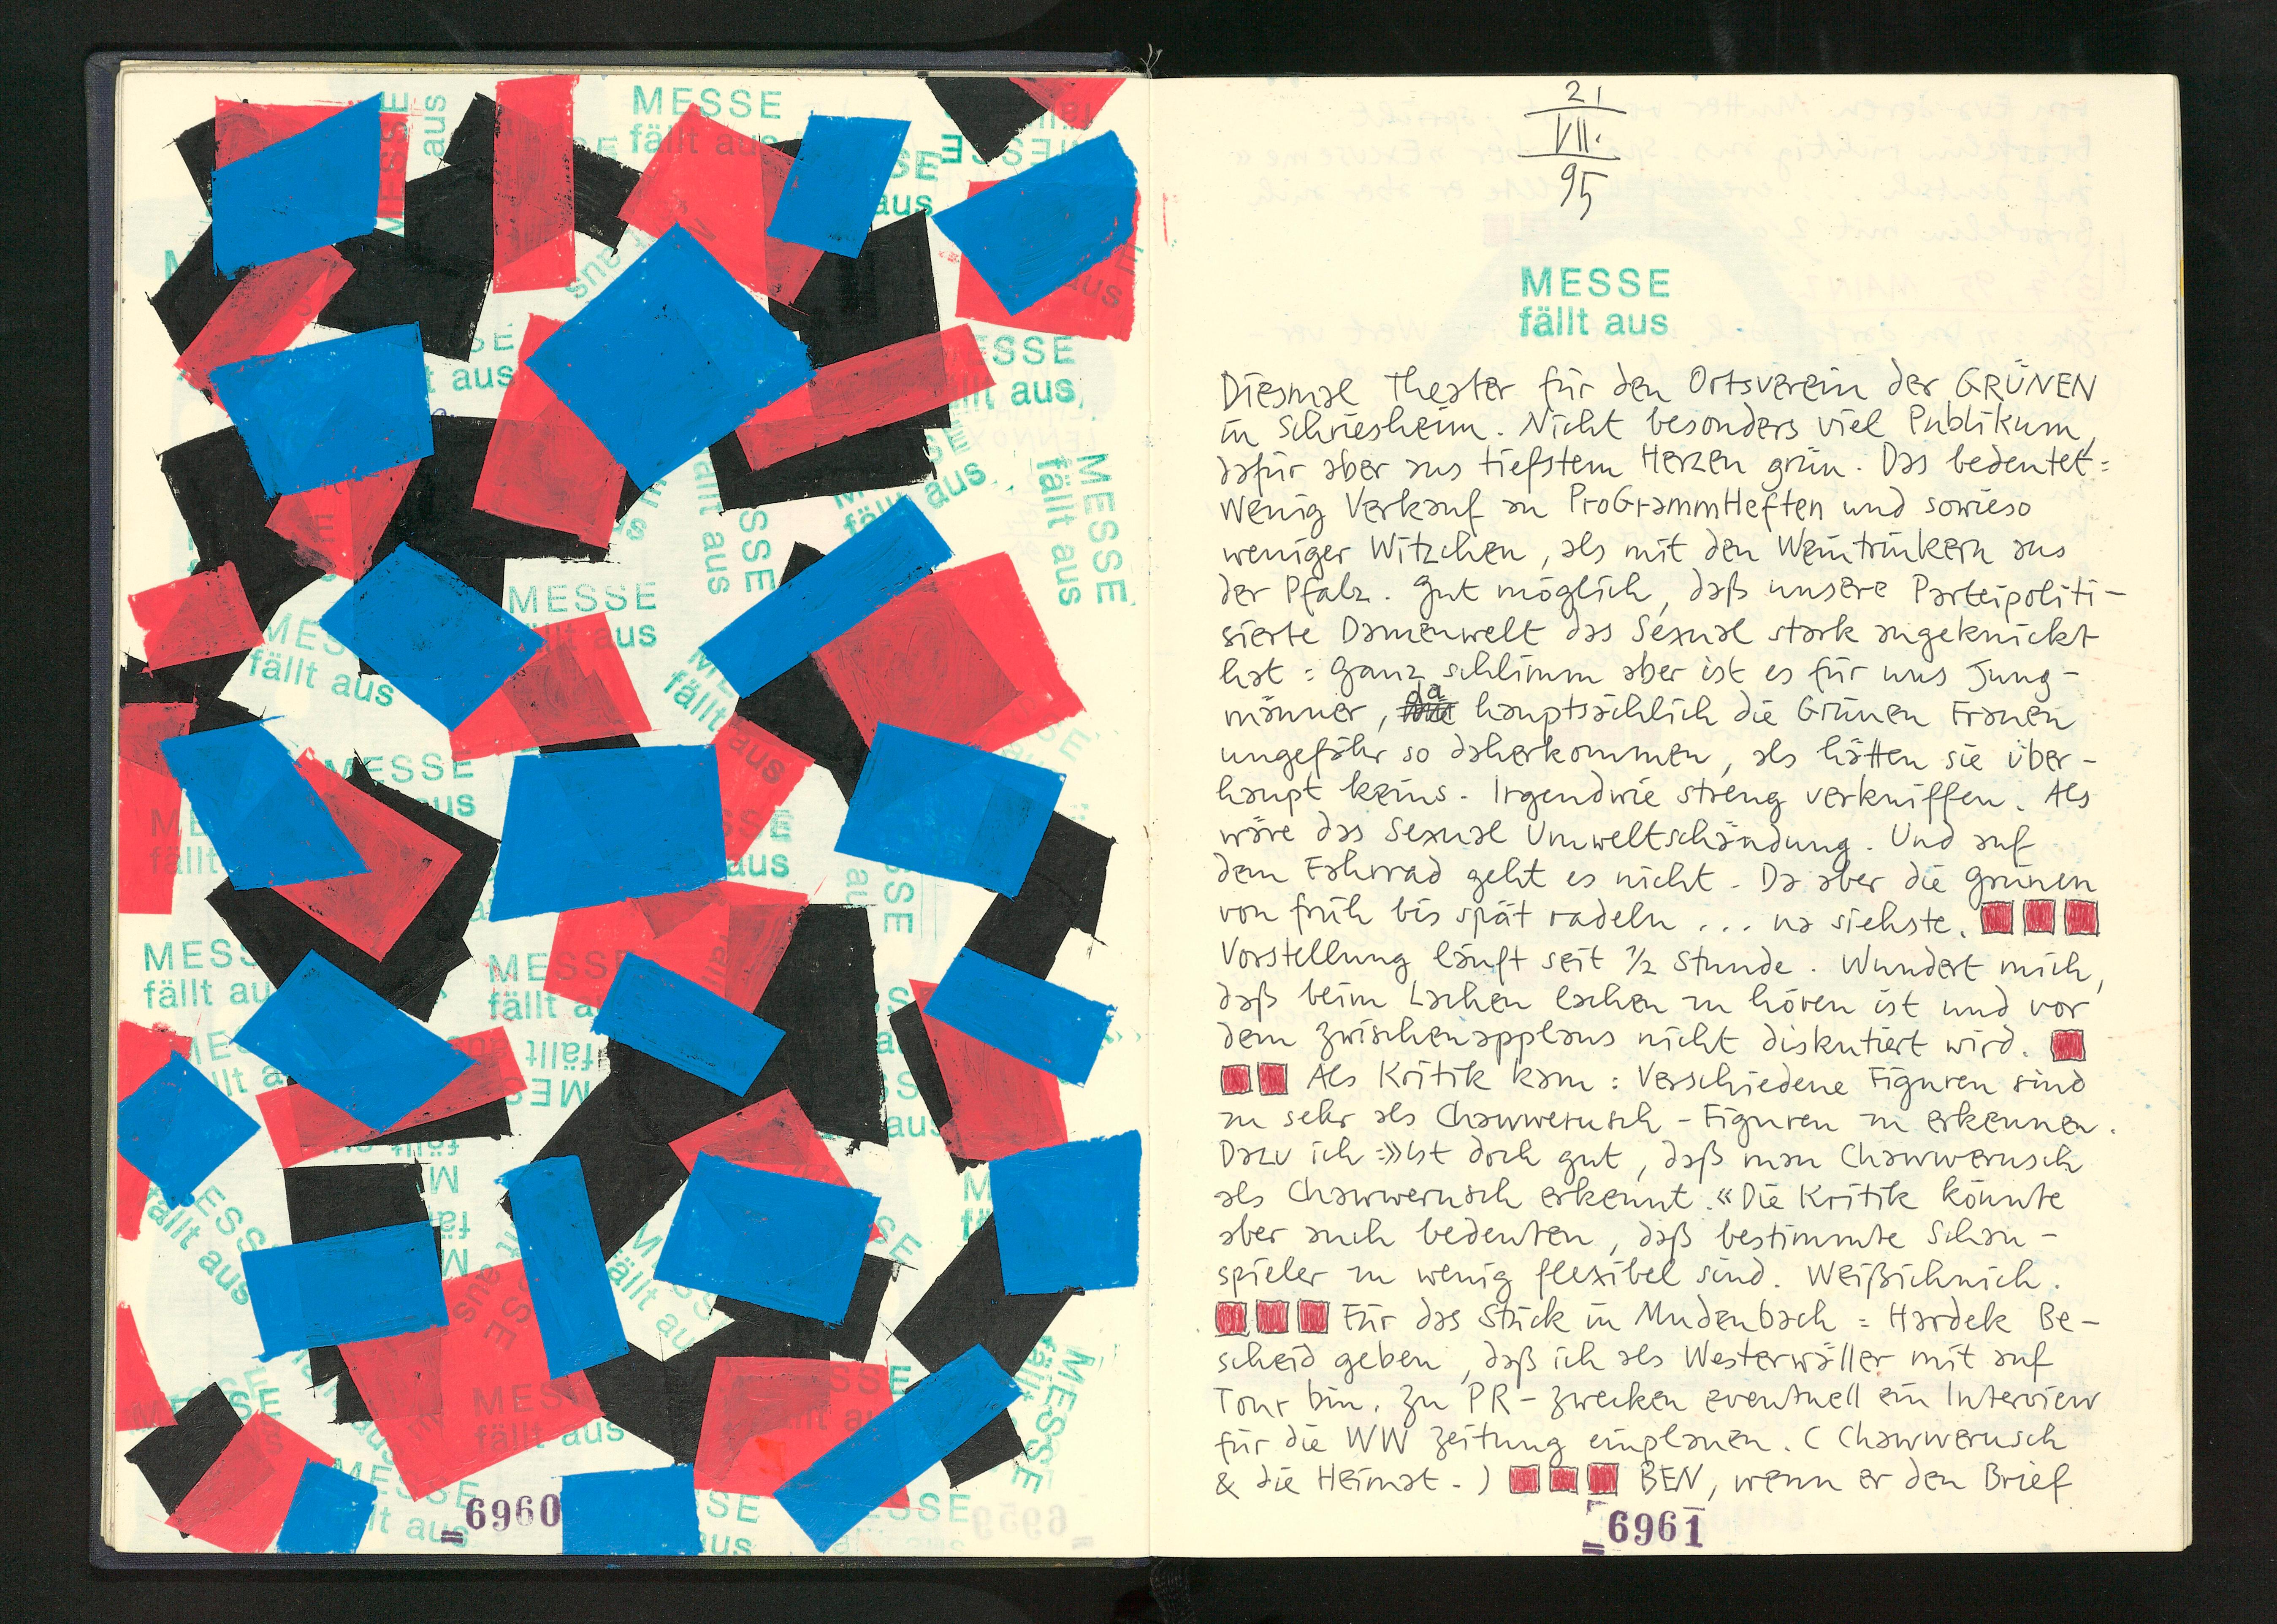 MESSE
fällt aus
6960
21
VII.
95
MESSE
fällt aus
Diesmal Theater für den Ortsverein der GRÜNEN
in Schriesheim. Nicht besonders viel Publikum,
dafür aber aus tiefstem Herzen grün. Das bedeutet:
wenig Verkauf an ProGrammHeften und sowieso
weniger Witzchen, als mit den Weintrinkern aus
der Pfalz. Gut möglich, daß unsere Parteipoliti-
sierte Damenwelt das Sexual stark angeknickt
hat: ganz schlimm aber ist es für uns Jung-
männer, da hauptsächlich die Grünen Frauen
ungefähr so daherkommen, als hätten sie über-
haupt keins. Irgendwie streng verkniffen. Als
wäre das Sexual Umweltschändung. Und auf
dem Fahrrad geht es nicht. Da aber die grünen
von früh bis spät radeln ... na siehste.
Vorstellung läuft seit 1/2 Stunde. Wundert mich,
daß beim Lachen lachen zu hören ist und vor
dem Zwischenapplaus nicht diskutiert wird.
Als Kritik kam: Verschiedene Figuren sind
zu sehr als Chawwerusch-Figuren zu erkennen.
Dazu ich: »Ist doch gut, daß man Chawwerusch
als Chawwerusch erkennt.« Die Kritik könnte
aber auch bedeuten, daß bestimmte Schau-
spieler zu wenig flexibel sind. Weißichnich.
Für das Stück in Mudenbach: Hardek Be-
scheid geben, daß ich als Westerwäller mit auf
Tour bin. Zu PR-Zwecken eventuell ein Interview
für die WW Zeitung einplanen. (Chawwerusch
& die Heimat.) BEN, wenn er den Brief
6961